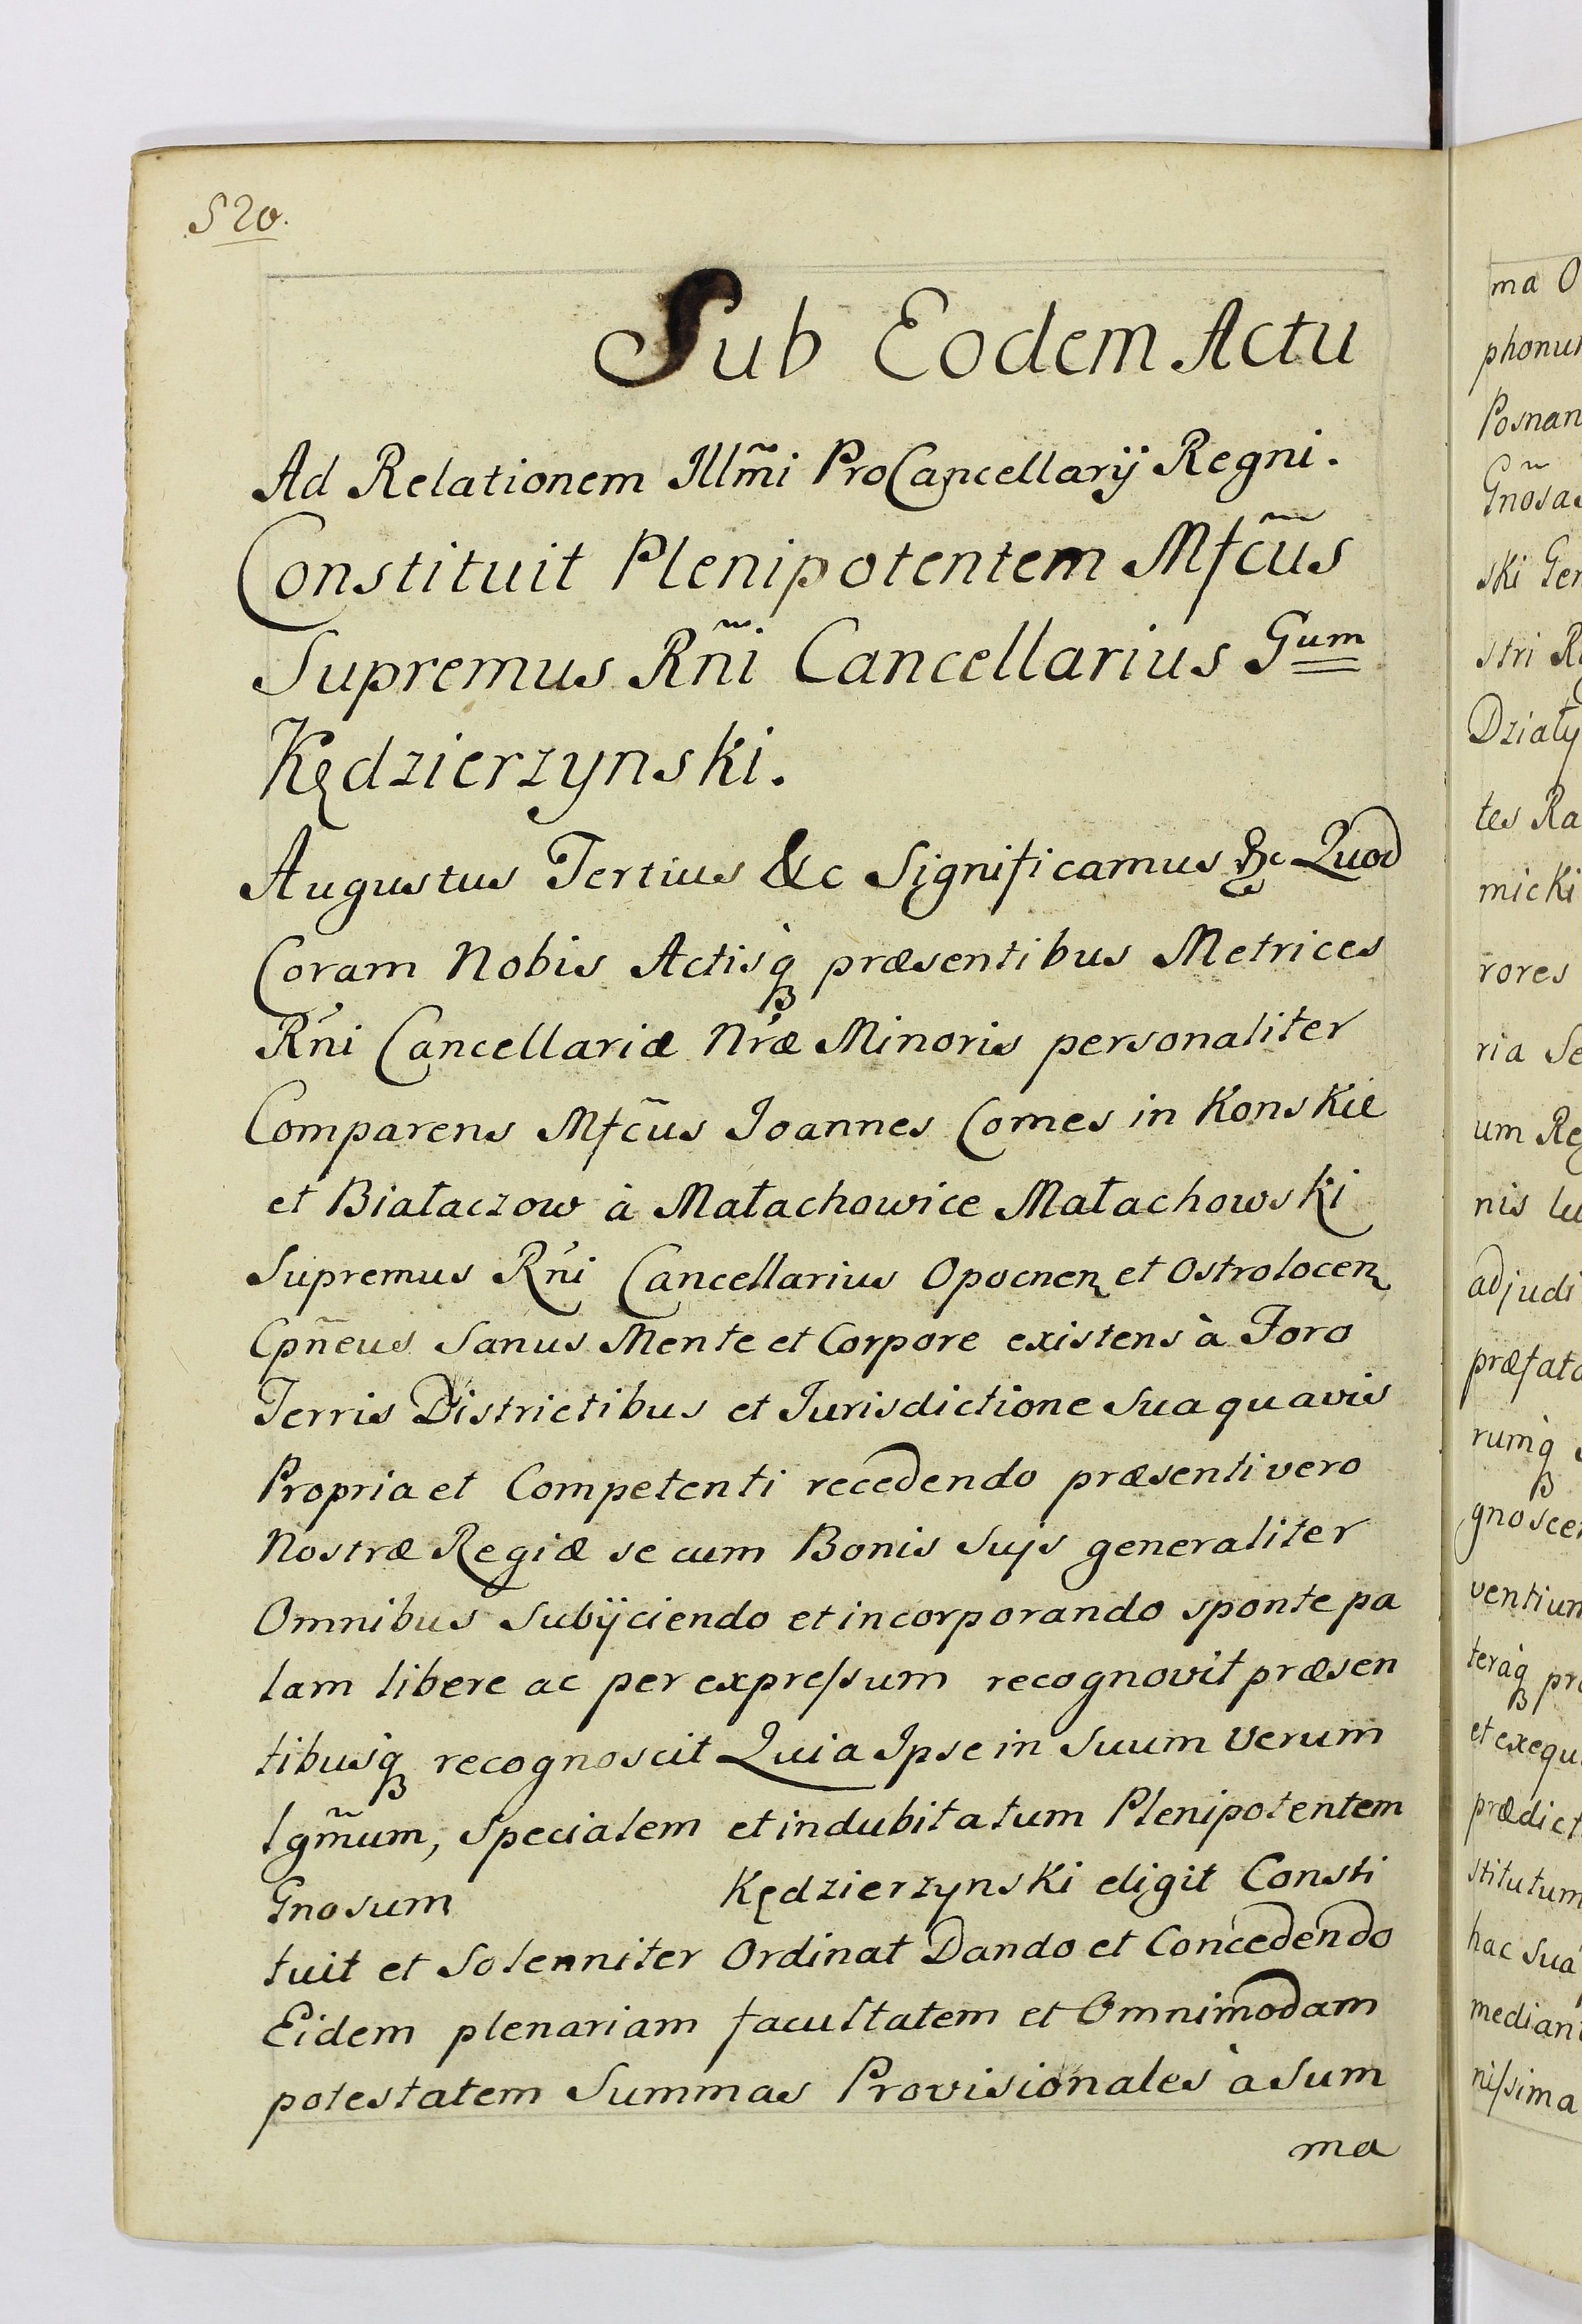 520.
Sub Eodem Actu
Ad Relationem Illm̃i ProCancellarij Regni.
Constituit Plenipotentem Mfcũs
Supremus Rñi Cancellarius Gum
Kędzierzynski.
Augustus Tertius &c Significamus &c Quod
Coram Nobis Actisq̀ præsentibus Metrices
Rńi Cancellariæ Nŕæ Minoris personaliter
Comparens Mfcũs Joannes Comes in Konskie
et Białaczow à Małachowice Małachowski
Supremus Rńi Cancellarius Opocnen et Ostrolocen
Cpñeus Sanus Mente et Corpore existens à Foro
Terris Districtibus et Jurisdictione Sua quavis
Propria et Competenti recedendo præsenti vero
Nostræ Regiæ se cum Bonis Suis generaliter
Omnibus Subijciendo et incorporando sponte pa
lam libere ac per expressum recognovit præsen
tibusq́ recognoscit Quia Ipse in Suum Verum
lgm̃um, Specialem et indubitatum Plenipotentem
Gnosum Kędzierzynski eligit Consti
tuit et Solenniter Ordinat Dando et Concedendo
Eidem plenariam facultatem et Omnimodam
potestatem Summas Provisionales à Sum
ma
ma O
phonu
Posnan
Gñosa
ski Ger
stri R
Działy
tes Ra
micki
rores
ria Se
um Re
nis lu
adjudi
præfat
rumq̀
gnosce
ventiun
teraq̀ pr
et exequ
prædict
stitutum
hac Sua
median
nissima